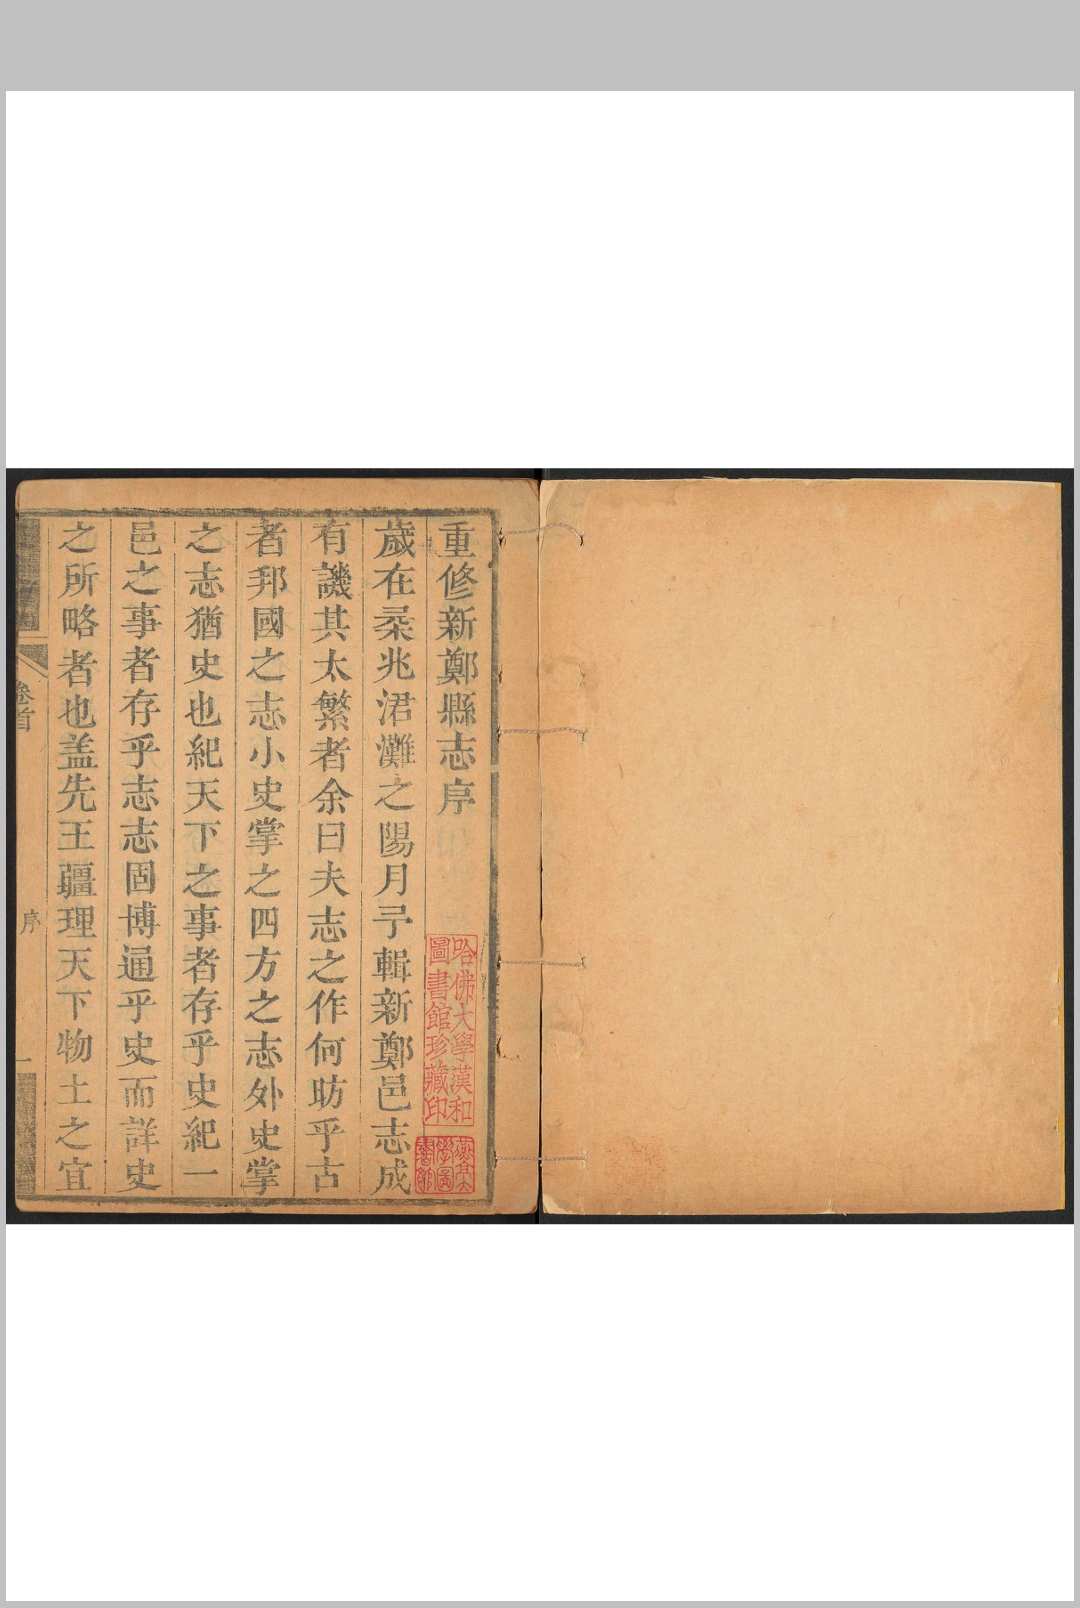 重修新鄭縣志序
歲在桑兆涒灘之陽月予輯新鄭邑志成
有譏其太繁者余曰夫志之作何昉乎古
者邦國之志小史掌之四方之志外史掌
之志猶史也紀天下之事者存乎史紀一
邑之事者存乎志志固博通乎史而詳史
之所略者也盖先王疆理天下物土之宜
卷首
序
一
哈佛大學漢和
圖書館珍藏印